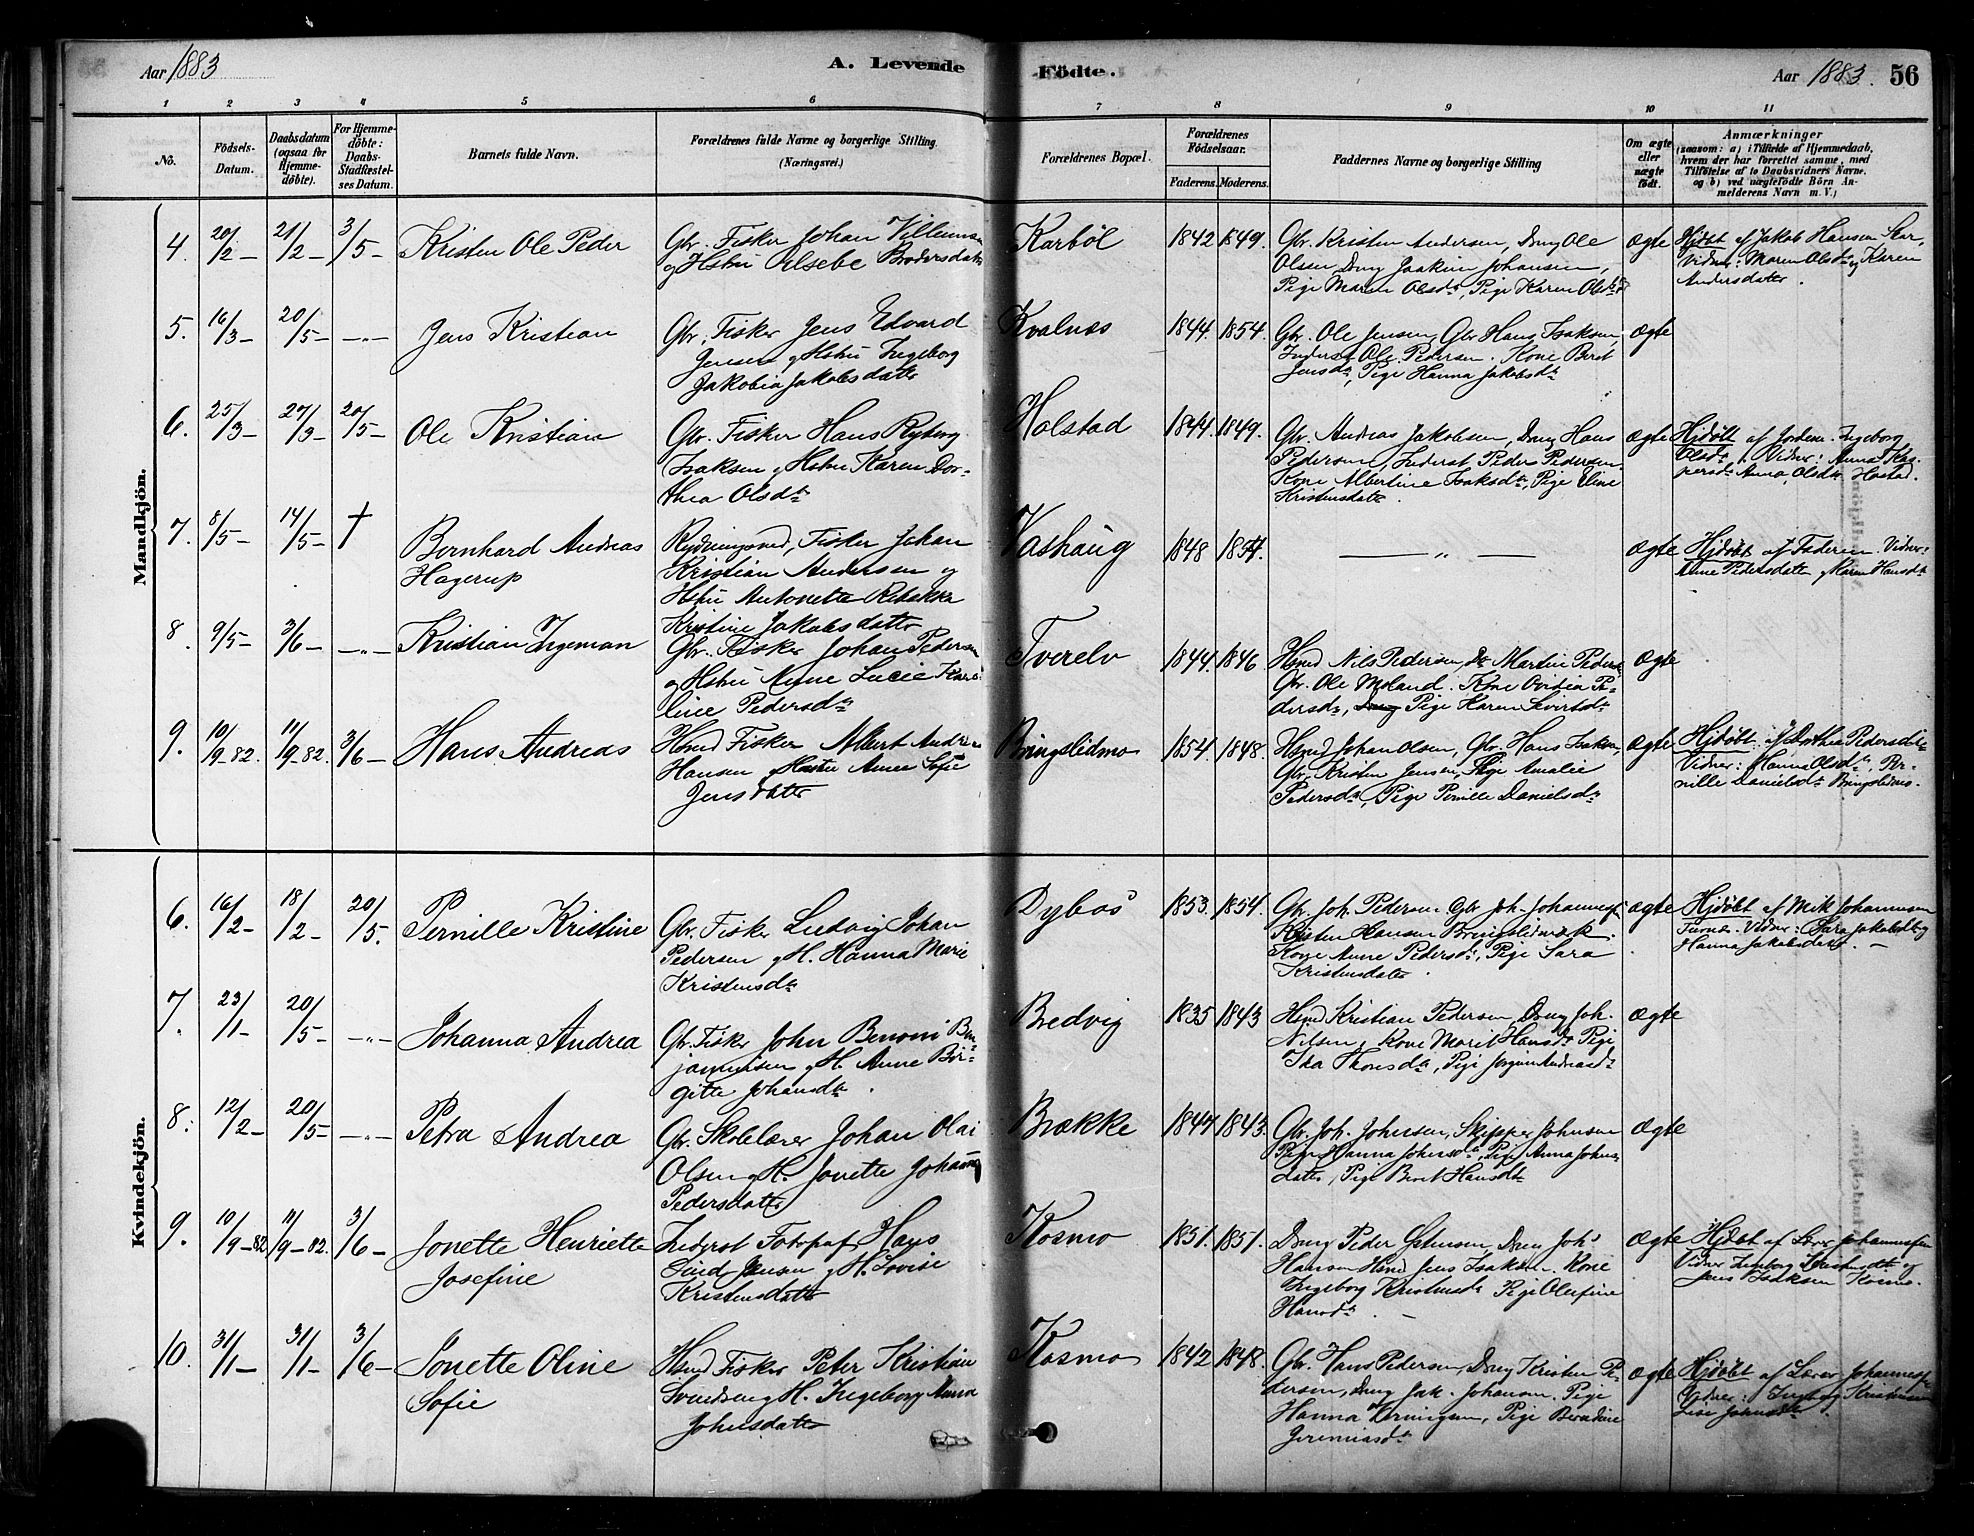 Aar 1883
A. Levende Födte.
Aar 1883. 56
1 2 3 4 5 6 7 8 9 10 11
No.
Födsels-Datum.
Daabsdatum (ogsaa for Hjemme-döbte).
For Hjemme-döbte: Daabs-Stadfæstel-ses Datum.
Barnets fulde Navn.
Forældrenes fulde Navne og borgerlige Stilling. (Næringsvei.)
Forældrenes Bopæl.
Forældrenes Födselsaar.
Faderens. Moderens.
Faddernes Navne og borgerlige Stilling
Om ægte eller uægte födt.
Anmærkninger
(saasom: a) i Tilfælde af Hjemmedaab,
hvem der har forrettet samme, med
Tilföielse af to Daabsvidners Navne,
og b) ved uægtefödte Börn An-
melderens Navn m. V.)
Mandkjön.
4. 20/2 - 21/2 - 3/5 - Kristen Ole Peder
Gbr. Fisker Johan Villumsen
og Hstru Elsebe Brodersdatter
Karböl 1842 1849.
Gbr. Kristen Andersen, Dreng Ole
Olsen, Dreng Joakim Johansen,
Pige Maren Olsdtr, Pige Karen
ægte
Hjdöbt af Jakob Hansen
Vidner: Maren Olsdtr og Karen
Andersdatter.
5. 16/3 - 20/5 - -"- Jens Kristian
Gbr. Fisker Jens Edvard
Jensen og Hstru Ingeborg
Jakobia Jakobsdatter
Kvalnæs 1844. 1854.
Gbr. Ole Jensen, Gbr Hans Isaksen,
Inderst Ole Pedersen. Kone Berit
Jensdtr, Pige Hanna Jakobsdtr
ægte
6. 25/3 - 27/3 - 20/5 - Ole Kristian
Gbr. Fisker Hans Ryberg
Isaksen og Hstru Karen Dor-
thea Olsdtr
Holstad 1844. 1849.
Gbr. Andreas Jakobsen, Dreng Hans
Pedersen, Inderst Peder Pedersen
Kone Albertine Isaksdtr, Pige Eline
Kristensdatter.
ægte
Hjdöbt af Jordem. Ingeborg
Olsdtr. Vidner: Anna Kas-
persdtr Anna Olsdtr
7. 8/5 - 14/5 - † Bernhard Andreas
Hagerup
Rydningsmd, Fisker Johan
Kristian Andersen og
Hstru Antonette Rebekka
Kristine Jakobsdatter
Vashaug 1848 1854.
— " —
ægte
Hjdöbt af Faderen. Vidner:
Anne Pedersdatter og Maren Hansdtr
8. 9/5 - 3/6 - -"- Kristian Ingeman
Gbr. Fisker Johan Pedersen
og Hstru Anne Lucie
line Pedersdtr
Tverelv 1844. 1846
Hsmd Nils Pedersen, Martin Peders
Gbr. Ole Moland. Kone Ovidia Pe-
dersdtr, Pige Karen Sivertsdtr
ægte
9. 10/9 82. 11/9 82. 3/6 - Hans Andreas
Hsmd Fisker Albert Andreas
Hansen Hstru Anne Sofie
Jensdatter
Bringslidmo 1854. 1848.
Hsmd Johan Olsen, Gbr. Hans Isaksen,
Gbr. Kristen Jensen, Pige Amalie
Pedersdtr, Pige Pernille Danielsdtr
ægte
Hjdöbt af Dorthea Pedersdtr
Vidner: Hanna Olsdtr, Per-
nille Danielsdtr Bringslidmo.
Kvindekjön.
6. 16/2 - 18/2 - 20/5. Pernille Kristine
Gbr. Fisker Ludvig Johan
Pedersen og H. Hanna Marie
Kristensdtr
Dybos 1853. 1854.
Gbr. Joh. Pedersen, Gbr Joh. Johannes
Kristen Hansen
Kone Anne Pedersdtr, Pige Sara
Kristensdatter.
ægte
Hjdöbt af Mik Johannesen
Vidner: Sara Jakobsdtr og
Hanna Jakobsdatter. -
7. 23/1 - 20/5 - -"- Johanna Andrea
Gbr. Fisker John Benoni Ben-
jaminsen og H. Anne Bir-
gitte Johansdtr.
Bredvig 1835 1843
Hsmd Kristian Pedersen, Dreng Joh.
Nilsen, Kone Marit Hansdtr Pige
Ida Thoresdtr, Pige
ægte
8. 12/2 - 20/5 - -"- Petra Andrea
Gbr. Skolelærer Johan Olai
Olsen og H. Jonette Johanna
Pedersdatter
Brække 1844 1843.
Gbr. Joh. Johnsen, Skipper Johnsen
Pige Hanna Johnsdtr, Pige Anna Johns-
datter, Pige Berit Hansdtr
ægte
9. 10/9 - 82 11/9 - 82. 3/6 - Jonette Henriette
Josefine
Inderst Fotograf Hans
Jensen og H. Lovise
Kristensdatter
Kosmo 1851. 1851.
Dreng Peder Dreng Joh's
Hansen Hsmd Jens Isaksen. Kone
Ingeborg Kristensdtr Pige Olufine
Hansdtr. -
ægte
Hjdöbt af Lærer Johannessen
Vidner Ingeborg Kristensdtr og
Jens Isaksen Kosmo.
10. 31/1 - 31/1 - 3/6 - Jonette Oline
Sofie
Hsmd Fisker Peter Kristian
Svendsen og H. Ingeborg Anna
Johnsdatter
Kosmo 1842 1848.
Gbr. Hans Pedersen, Dreng Kristen Pe-
dersen, Dreng Jak. Johansen. Pige
Hanna Pige Berntine
Jeremiasdtr
ægte
Hjdöbt af Lærer Johannes
Vidner: